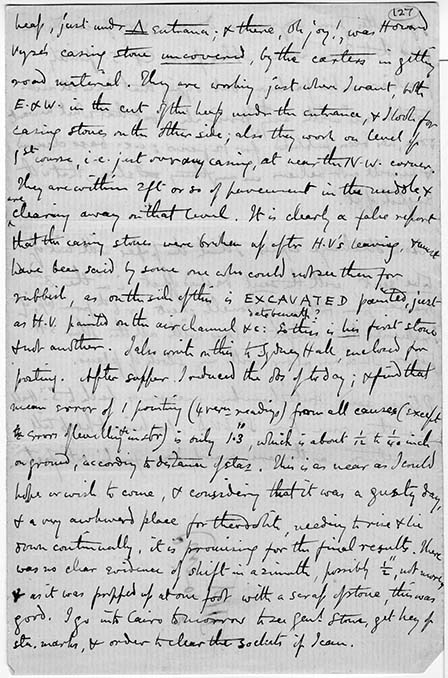 127
heap, just under Δ entrance; & there, oh joy!, was Howard
Vyse's casing stone uncovered, by the carters in getting
road material. They are working just where I want both
E. & W. in the cut of the heap under the entrance, & I look for
casing stones on the other side; also they work on level of
1st course, i.e. just over any casing, at near the N.W. corner.
They are within 2 ft or so of pavement in the middle, &
are clearing away on that level. It is clearly a false report
that the casing stones were broken up after H.V.s leaving, & must
have been said by some one who could not see them for
rubbish, as on the side of this is EXCAVATED painted, just
date beneath?
as H.V. painted on the air channel &c: So this is his first stone
& not another. I also write on this to Sydney Hall, enclosed for
posting. After supper I reduced the obs of today; & find that
mean error of 1 pointing (4 vern readings) from all causes (except
the errors of levelling instr) is only 1.3", which is about 1/12 to 1/40 inch
on ground, according to distance of sta. This is as near as I could
hope or wish to come, & considering that it was a gusty day,
& a very awkward place for theodolite, needing to rise & lie
down continually, it is promising for the final results. There
was no clear evidence of shift in azimuth, possibly ½", not more,
& as it was propped up at one foot with a scrap of stone, this was
good. I go into Cairo tomorrow to see Genl. Stone, get key of
sta. marks, & order to clear the sockets if I can.